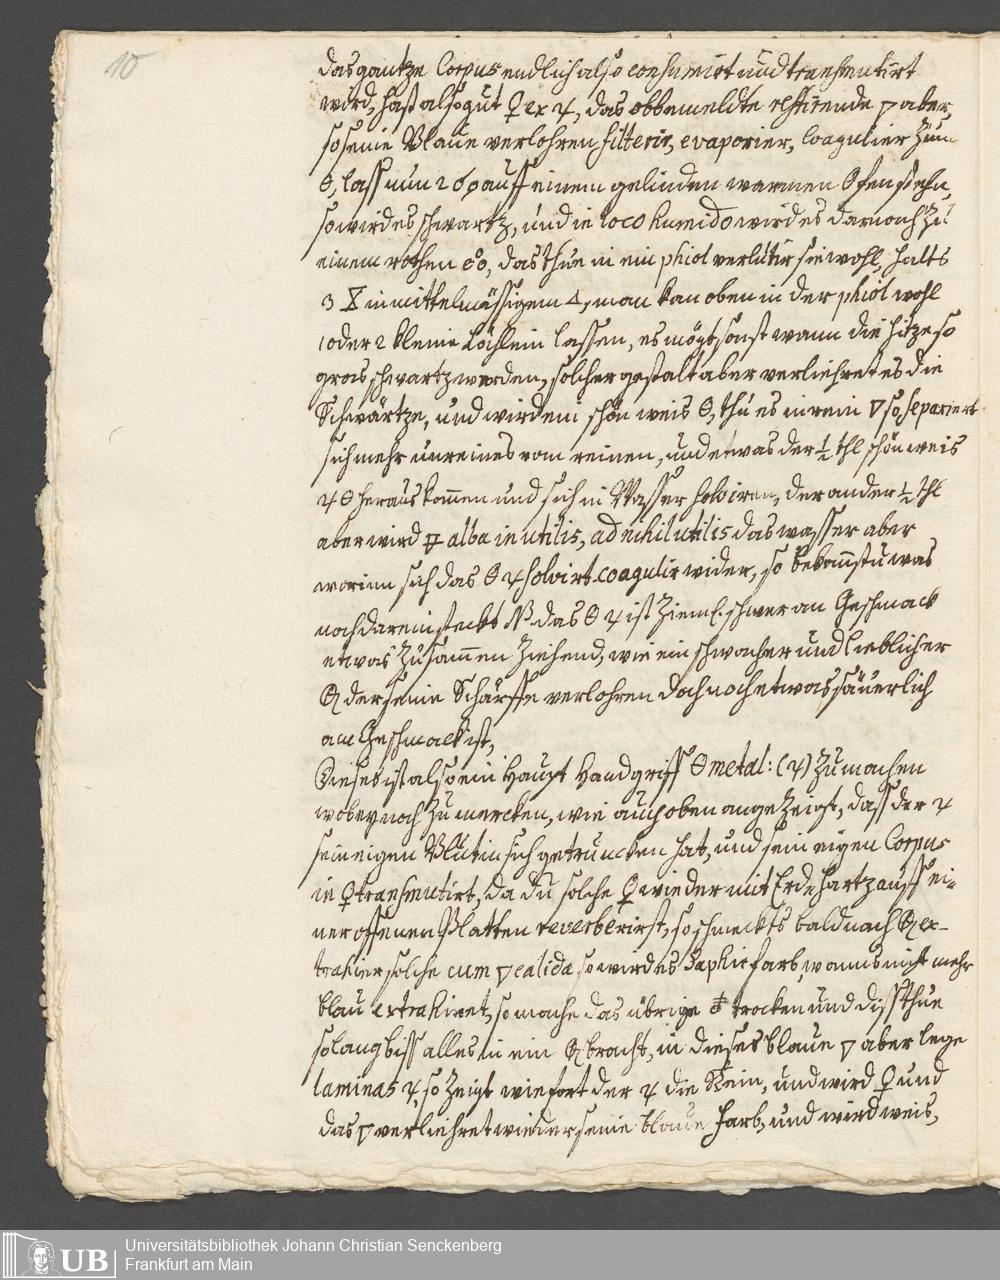 10
das gantze Corpus endlich also consumirt und transmutirt
wird, hast also gut ♀ ex ♃, das obbemeldte restirende ▽ aber,
so seine Blaue verlohren, filterir, evaporier, Coagulier zum
🜔, lass nun auff einem gelinden warmen Ofen stehn,
so wird es schwartz, und in loco humido wird es darnach zu
einem rothen, das thue in ein phiol verlutir sie wohl, halts
3 in mittelmässigem 🜂, man kan oben in der phiol wohl
1 oder 2 kleine Löchlein lassen, es mögt sonst wann die hitze so
gros schwartz werden, solcher gestalt aber verliehret es die
Schwärtze, und wird ein schön weis 🜔, thu es in rein ▽ so, separiert
sich mehr unreines vom reinen, und etwas der ½ thl schön weis
♃ 🜔 heraus kom̄en und sich in Wasser solviren, der ander ½ thl
aber wird 🜃 alba inutilis, ad nihil utilis das wasser aber
worinn sich das 🜔 ♃ solvirt coagulir wider, so bekom̄stu was
noch darein steckt NB das 🜔 ♃ ist Zieml. schwer an Geschmack
etwas Zusam̄en Ziehend, wie ein schwacher und lieblicher
der seine Schärffe verlohren doch noch etwas säuerlich
am Geschmack ist,
Dieses ist also ein Haupt Handgriff 🜔 metal: (♃) Zu machen
wobey noch Zu mercken, wie auch oben angeZeigt, dass der ♃
sein eigen Blut in sich getruncken hat, und sein eigen Corpus
in ♀ transmutirt, da du solche ♀ wieder mit Erdhartz auff ei-
ner offenen Platten reverberirst, so schmeckts bald nach ex-
trahier solche cum ▽ calida so wird es Saphir farb, wanns nicht mehr
blau extrahiret, so mache das übrige trocken und diss thue
solang biss alles in ein bracht, in dieses blaue ▽ aber lege
laminas ♃, so Zeigt wie fort der ♃ die Stein, und wird ♀ und
das ▽ verliehret wieder seine blaue Farb, und wird weis,
UB
Universitätsbibliothek Johann Christian Senckenberg
Frankfurt am Main